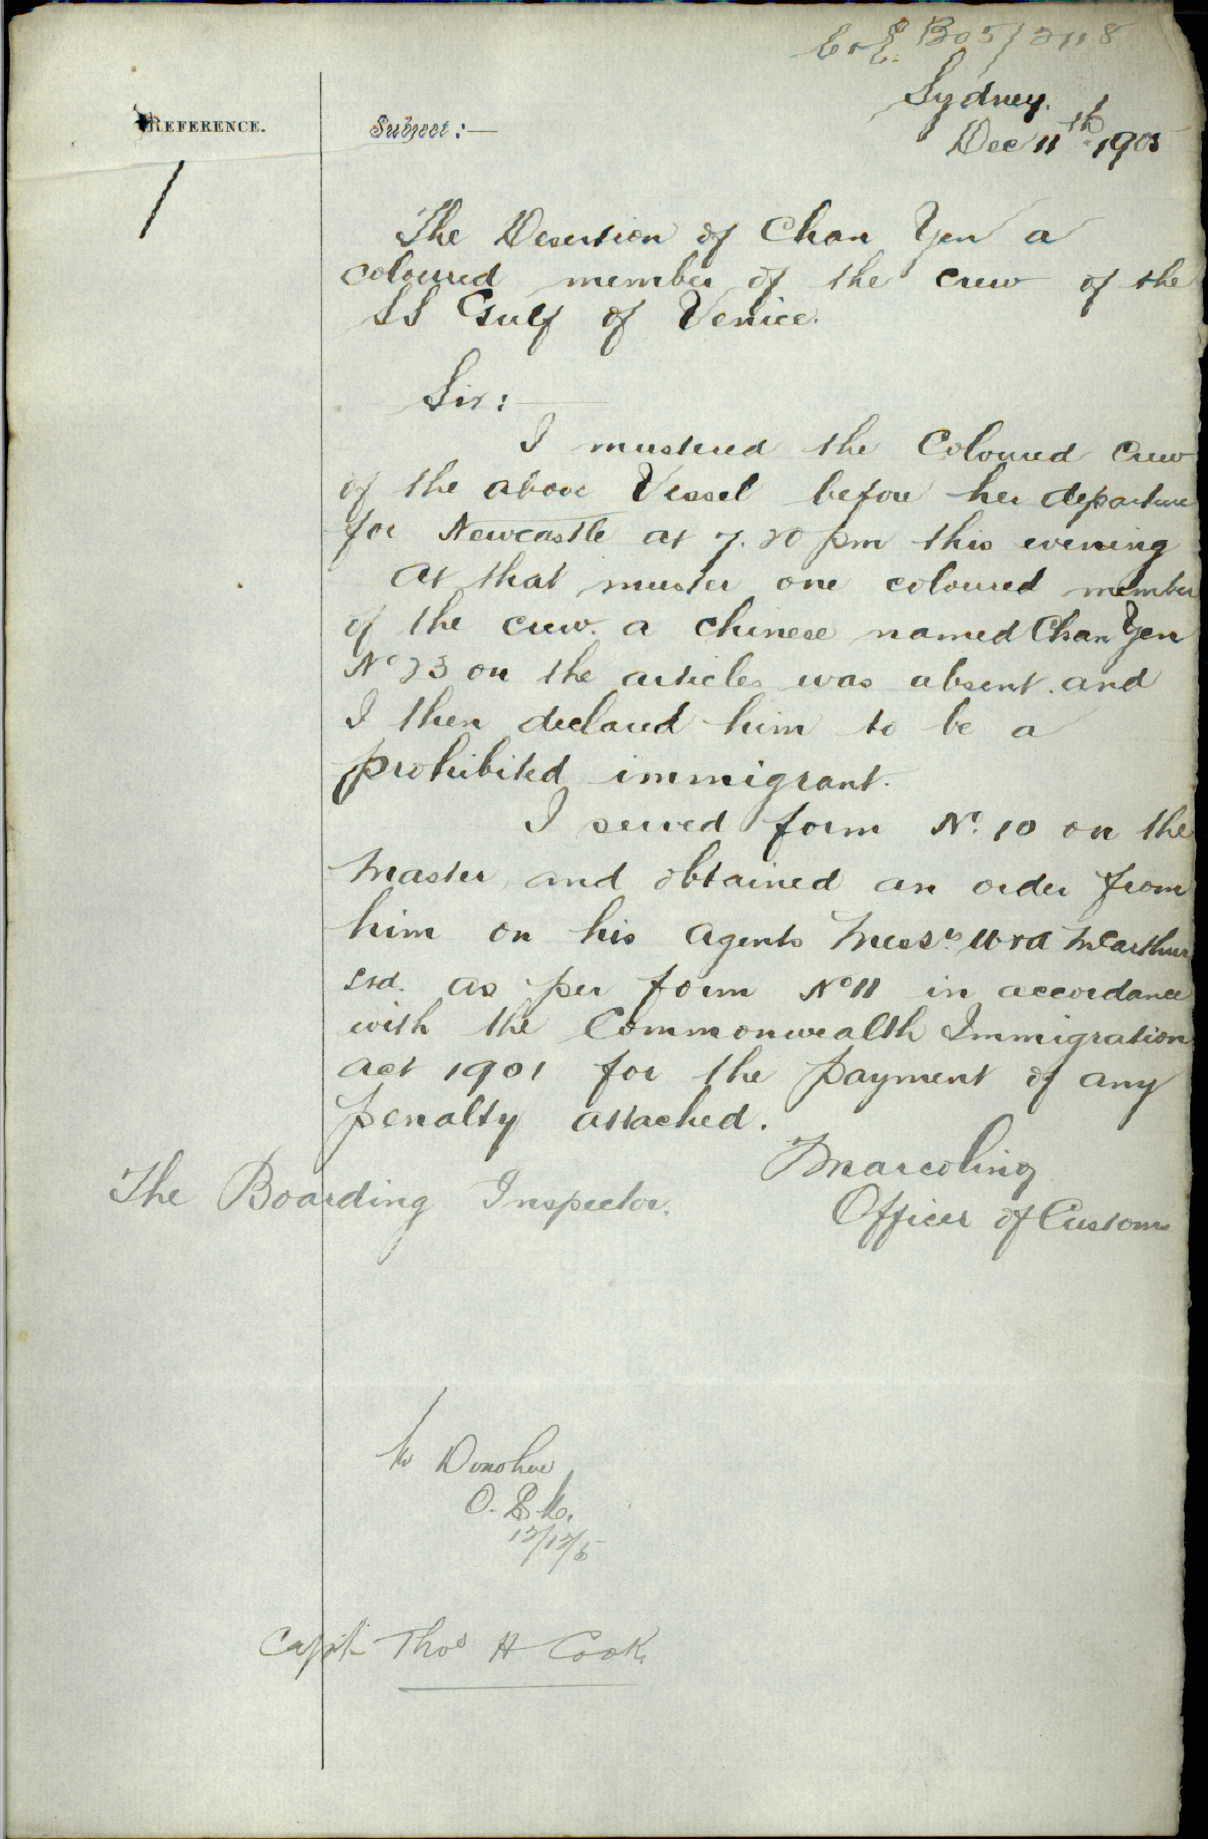 B05/3118
Sydney.
Dec 11th 1905
REFERENCE.
Subject:—
The Desertion of Chan Yen a
coloured member of the crew of the
SS Gulf of Venice.
Sir:
I mustered the Coloured Crew
of the above Vessel before her departure
for Newcastle at 7.20 pm this evening
At that muster one coloured member
of the crew. a Chinese named Chan Yen
No 23 on the articles was absent. and
I then declared him to be a
prohibited immigrant.
I served form No. 10 on the
Master and obtained an order from
him on his Agents Messrs W & A McArthur
Ltd. as per form No 11 in accordance
with the Commonwealth Immigration
Act 1901 for the payment of any
penalty attached.
The Boarding Inspector.
Officer of Customs
Mr Donohoe
12/12/5
Capt Thos H Cook